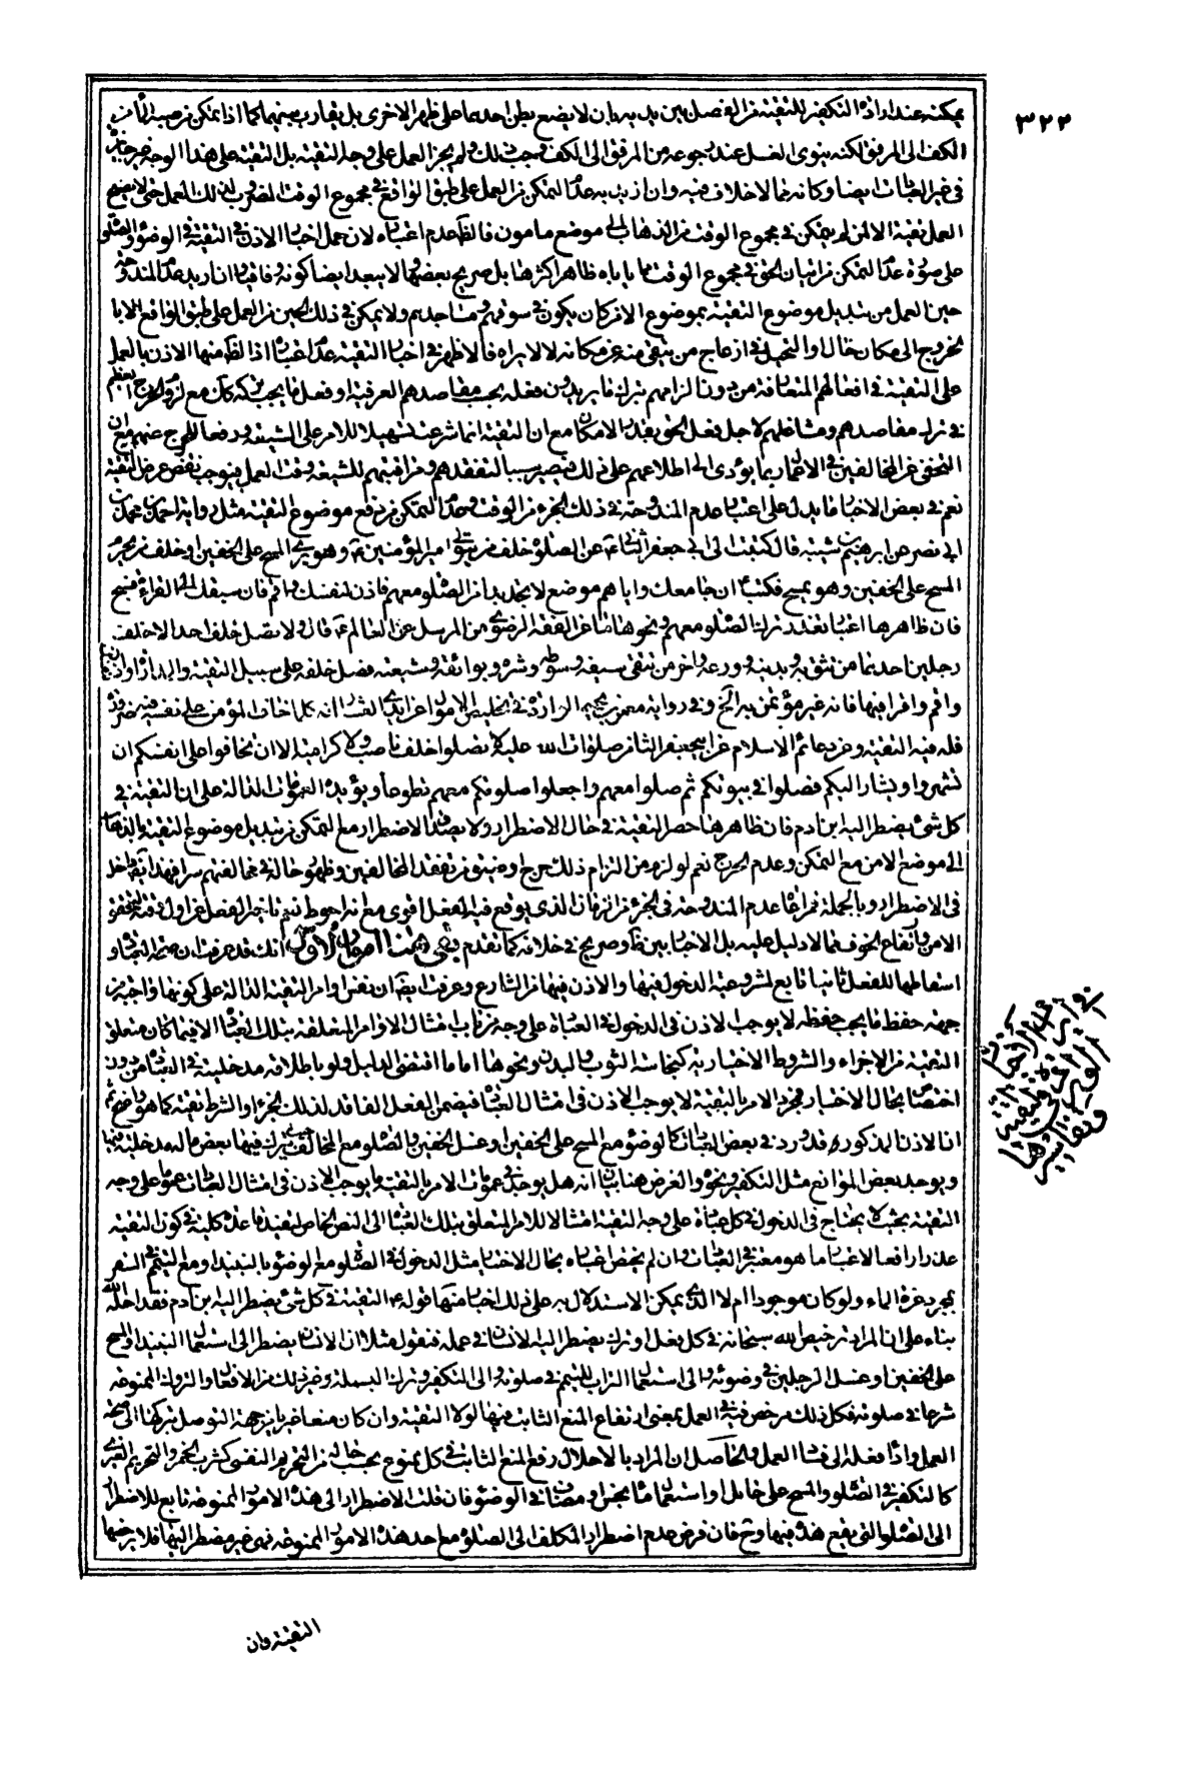 ٣٢٢
يمكنه عند ارادة التكفير للتقية من الفصل بين يديه بان لا يضع بطن احدهما على ظهر الاخرى بل يقارب بينهما كما اذا تمكن من صب الماء من
الكف الى المرفق لكنه ينوى الغسل عند رجوعه من المرفق الى الكف وجب ذلك ولم يجز العمل على وجه التقية بل التقية على هذا الوجه غير جائز
فى غير العبادات ايضا وكانه مما لا خلاف فيه وان اريد به عدم التمكن من العمل على طبق الواقع فى مجموع الوقت المضروب لذلك العمل حتى لا يصح
العمل تقية الا لمن لم يتمكن فى مجموع الوقت من الذهاب الى موضع مامون فالظ عدم اعتباره لان حمل اخبار الاذن فى التقية فى الوضوء والصلوة
على صورة عدم التمكن من اتيان الحق فى مجموع الوقت مما ياباه ظاهر اكثرها بل صريح بعضها ولا يبعد ايضا كونه وفاقيا وان اريد عدم المندوحة
حين العمل من تبديل موضوع التقية بموضوع الامن كان يكون فى سوقهم ومساجدهم ولا يمكن فى ذلك الحين من العمل على طبق الواقع الا با
لخروج الى مكان خال او التحيل فى ازعاج من يتقى منه عن مكانه لئلا يراه فالاظهر فى اخبار التقية عدم اعتباره اذ الظ منها الاذن بالعمل
على التقية فى افعالهم المتعارفة من دون الزامهم بترك ما يريدون فعله بحسب مقاصدهم العرفية او فعل ما يجب تركه كك مع لزوم الحرج العظيم
فى ترك مقاصدهم ومشاغلهم لاجل فعل الحق بقدر الامكان مع ان التقية انما شرعت تسهيلا للامر على الشيعة ورفعا للحرج عنهم مع ان
التخفى عن المخالفين فى الاعمال ربما يؤدى الى اطلاعهم على ذلك فيصير سببا لتفقدهم ومراقبتهم للشيعة وقت العمل فيوجب نقض غرض التقية
نعم فى بعض الاخبار ما يدل على اعتبار عدم المندوحة فى ذلك الجزء من الوقت وعدم التمكن من رفع موضوع التقية مثل رواية احمد بن محمد بن
ابى نصر عن ابرهيم بن شيبة قال كتبت الى ابى جعفر الثانى ع عن الصلوة خلف من يتولى امير المؤمنين ع وهو يرى المسح على الخفين او خلف من يحرم
المسح على الخفين وهو يمسح فكتب ع ان جامعك واياهم موضع لا تجد بدا من الصلوة معهم فاذن لنفسك واقم فان سبقك الى القراءة فسبح
فان ظاهرها اعتبار تعذر ترك الصلوة معهم ونحوها ما عن الفقه الرضوى من المرسل عن العالم ع قال ولا تصل خلف احد الا خلف
رجلين احدهما من تثق به وبدينه وورعه واخر من تتقى سيفه وسوطه وشره وبوائقه وشنعته فصل خلفه على سبيل التقية والمداراة واذن
واقم واقرء فيها فانه غير مؤتمن به الخ وفى رواية معمر بن يحيى الواردة فى تخليص الاموال من ايدى العشار انه كلما خاف المؤمن على نفسه فيه ضرورة
فله فيه التقية وعن دعائم الاسلام عن ابى جعفر الثانى صلوات الله عليه لا تصلوا خلف ناصب ولا كرامة الا ان تخافوا على انفسكم ان
تشهروا ويشار اليكم فصلوا فى بيوتكم ثم صلوا معهم واجعلوا صلوتكم معهم تطوعا ويؤيده العمومات الدالة على ان التقية فى
كل شئ يضطر اليه ابن ادم فان ظاهرها حصر التقية فى حال الاضطرار ولا يصدق الاضطرار مع التمكن من تبديل موضوع التقية بالذهاب
الى موضع الامن مع التمكن وعدم الحرج نعم لو لزم من التزام ذلك حرج او ضيق من تفقد المخالفين وظهور حاله فى مخالفتهم سرا فهذا ايضا داخل
فى الاضطرار وبالجملة فمراعاة عدم المندوحة فى الجزء من الزمان الذى يوقع فيه الفعل اقوى مع انه احوط نعم تاخير الفعل عن اول وقته لتحقق
الامن وارتفاع الخوف مما لا دليل عليه بل الاخبار بين ظاهر وصريح فى خلافه كما تقدم بقى هنا امور الاول انك قد عرفت ان صحة العبادة و
اسقاطها للفعل ثانيا تابع لمشروعية الدخول فيها والاذن فيها من الشارع وعرفت ايضا ان نفس اوامر التقية الدالة على كونها واجبة من
جهة حفظ ما يجب حفظه لا يوجب الاذن فى الدخول فى العبادة على وجه التقية من باب امتثال الاوامر المتعلقة بتلك العبادة الا فيما كان متعلق
التقية من الاجزاء والشروط الاختيارية كنجاسة الثوب والبدن ونحوها اما ما اقتضى الدليل ولو باطلاقه مدخليته فى العبادة من دون
اختصاص بحال الاختيار فمجرد الامر بالتقية لا يوجب الاذن فى امتثال العبادة فى ضمن الفعل الفاقد لذلك الجزء او الشرط تقية كما هو واضح ثم
ان الاذن المذكور قد ورد فى بعض العبادات كالوضوء مع المسح على الخفين او غسل الخفين والصلوة مع المخالف حيث يترك فيها بعض ما له مدخلية فيها
ويوجد بعض الموانع مثل التكفير ونحوه والغرض هنا بيان انه هل يوجد فى عمومات الامر بالتقية ما يوجب الاذن فى امتثال العبادات عموما على وجه
التقية بحيث لا يحتاج فى الدخول فى كل عبادة على وجه التقية امتثالا للامر المتعلق بتلك العبادة الى النص الخاص لتفيد قاعدة كلية فى كون التقية
عذرا رافعا لاعتبار ما هو معتبر فى العبادات وان لم يختص اعتباره بحال الاختيار مثل الدخول فى الصلوة مع الوضوء بالنبيذ او مع التيمم فى السفر
بمجرد عزة الماء ولو كان موجودا ام لا الذى يمكن الاستدلال به على ذلك اخبار منها قوله ع التقية فى كل شئ يضطر اليه ابن ادم فقد احله الله
بناء على ان المراد ترخيص الله سبحانه فى كل فعل او ترك يضطر اليه الانسان فى عمله فنقول مثلا ان الانسان يضطر الى استعمال النبيذ او المسح
على الخفين او غسل الرجلين فى وضوئه والى استعمال التراب للتيمم فى صلوته والى التكفير وترك البسملة وغير ذلك من الافعال والتروك الممنوعة
شرعا فى صلوته فكل ذلك مرخص فيه فى العمل بمعنى ارتفاع المنع الثابت فيها لولا التقية وان كان منعا غيريا من جهة التوصل بتركها الى صحة
العمل واداء فعله الى فساد العمل والحاصل ان المراد بالاحلال رفع المنع الثابت فى كل ممنوع بحسب حاله من التحريم النفسى كشرب الخمر والتحريم الغيرى
كالتكفير فى الصلوة والمسح على حائل او استعمال ماء نجس او مضاف فى الوضوء فان قلت الاضطرار الى هذه الامور الممنوعة تابع للاضطرار
الى الصلوة التى يقع هذه فيها وح فان فرض عدم اضطرار المكلف الى الصلوة مع احد هذه الامور الممنوعة فهى غير مضطر اليها فلا يرخصها
التقية وان